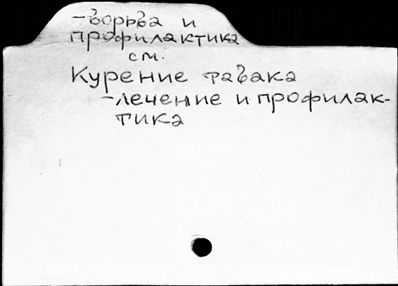 -борьба и
профилактика
см.
Курение табака
-лечение и профилак-
тика